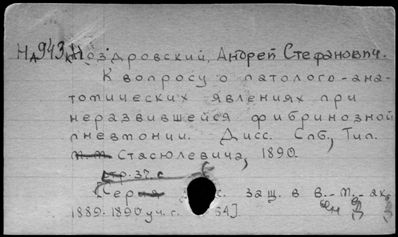 Ноздровский, Андрей Стефанович.
К вопросу о патолого-ана-
томических явлениях при
неразвившейся фибринозной
пневмонии. Дисс. Спб., Тип.
Стасюлевича, 1890.
стр. 37. с
защ. в в.-м.-ак.
1889-1890 уч. г. 64]